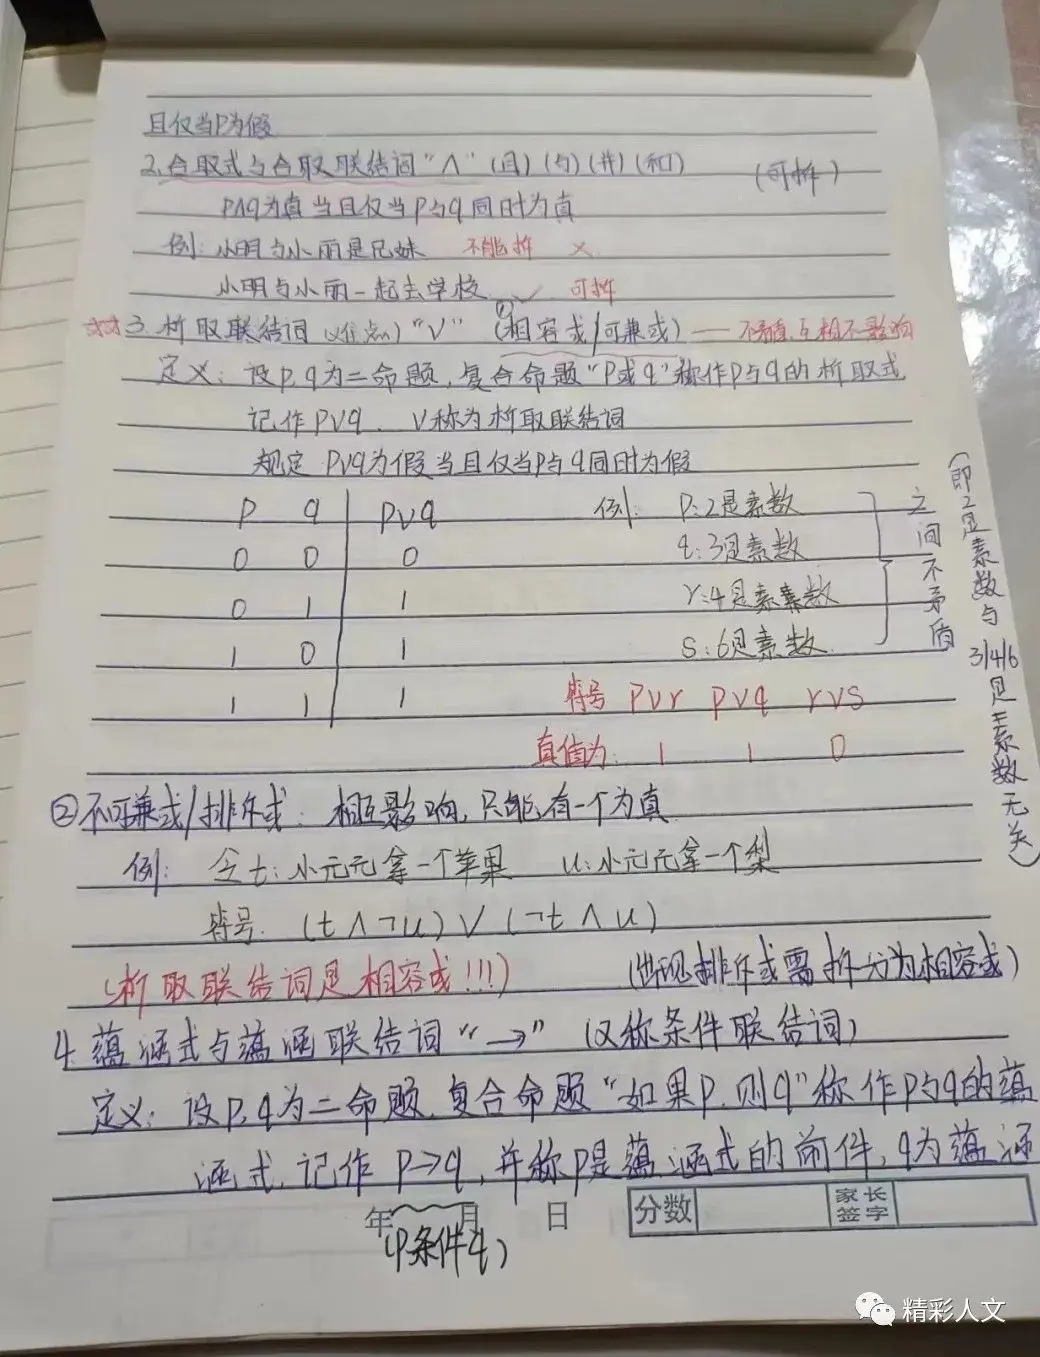 且仅当P为假
2.合取式与合取联结词"∧"(且)(与)(并)(和) (可拆)
P∧q为真当且仅当P与q同时为真
例:小明与小丽是兄妹 不能拆 ×
小明与小丽一起去学校 ✓ 可拆
☆☆3.析取联结词 "∨" ①(相容或/可兼或)——不矛盾,互相不影响
定义:设P,q为二命题,复合命题"P或q"称作P与q的析取式
记作P∨q. ∨称为析取联结词
规定 P∨q为假当且仅当P与q同时为假
P q P∨q 例: P:2是素数
0 0 0 q:3是素数
0 1 1 r:4是素数
1 0 1 s:6是素数
1 1 1 符号 P∨r P∨q r∨s
真值为: 1 1 0
之间不矛盾
(即2是素数与3/4/6是素数无关)
②不可兼或/排斥或:相互影响,只能有一个为真
例: 令t:小元元拿一个苹果 u:小元元拿一个梨
符号. (t∧¬u)∨(¬t∧u)
(析取联结词是相容或!!!) (出现排斥或需拆分为相容或)
4.蕴涵式与蕴涵联结词"→" (又称条件联结词)
定义:设P,q为二命题,复合命题"如果P,则q"称作P与q的蕴
涵式,记作 P→q,并称P是蕴涵式的前件,q为蕴涵
年 月 日 分数 家长签字
(P条件q)
精彩人文